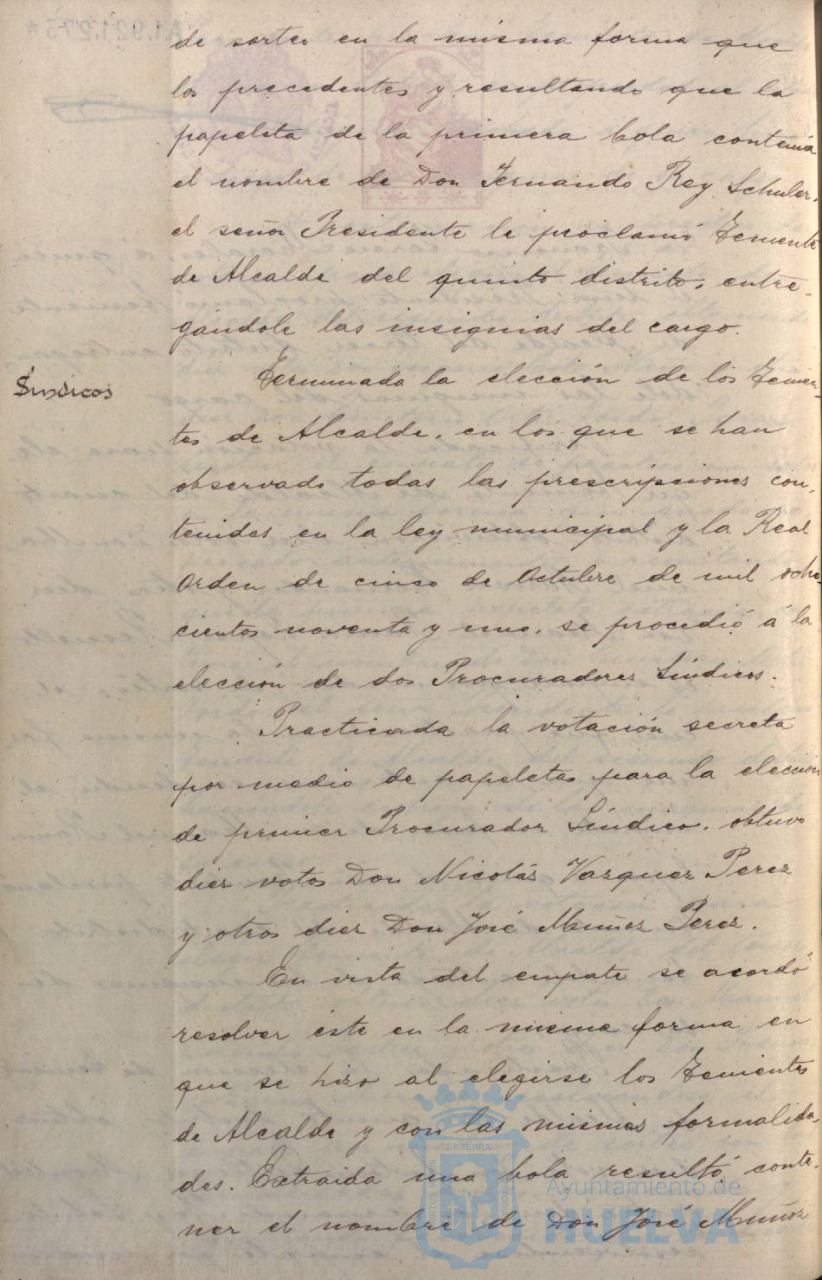 de sorteo en la misma forma que
los precedentes y resultando que la
papeleta de la primera bola contenía
el nombre de Don Fernando Rey Schuler,
el señor Presidente le proclamó Teniente
de Alcalde del quinto distrito, entre-
gándole las insignias del cargo.
Síndicos
Terminada la elección de los Tenien-
tes de Alcalde, en los que se han
observado todas las prescripciones con-
tenidas en la ley municipal y la Real
Orden de cinco de Octubre de mil ocho-
cientos noventa y uno, se procedió á la
elección de dos Procuradores Síndicos.
Practicada la votación secreta
por medio de papeletas para la elección
de primer Procurador Síndico, obtuvo
diez votos Don Nicolás Vazquez Perez
y otros diez Don José Muñoz Perez.
En vista del empate se acordó
resolver éste en la misma forma en
que se hizo al elegirse los Tenientes
de Alcalde y con las mismas formalida-
des. Extraida una bola resultó conte-
ner el nombre de Don José Muñoz
Ayuntamiento de
HUELVA